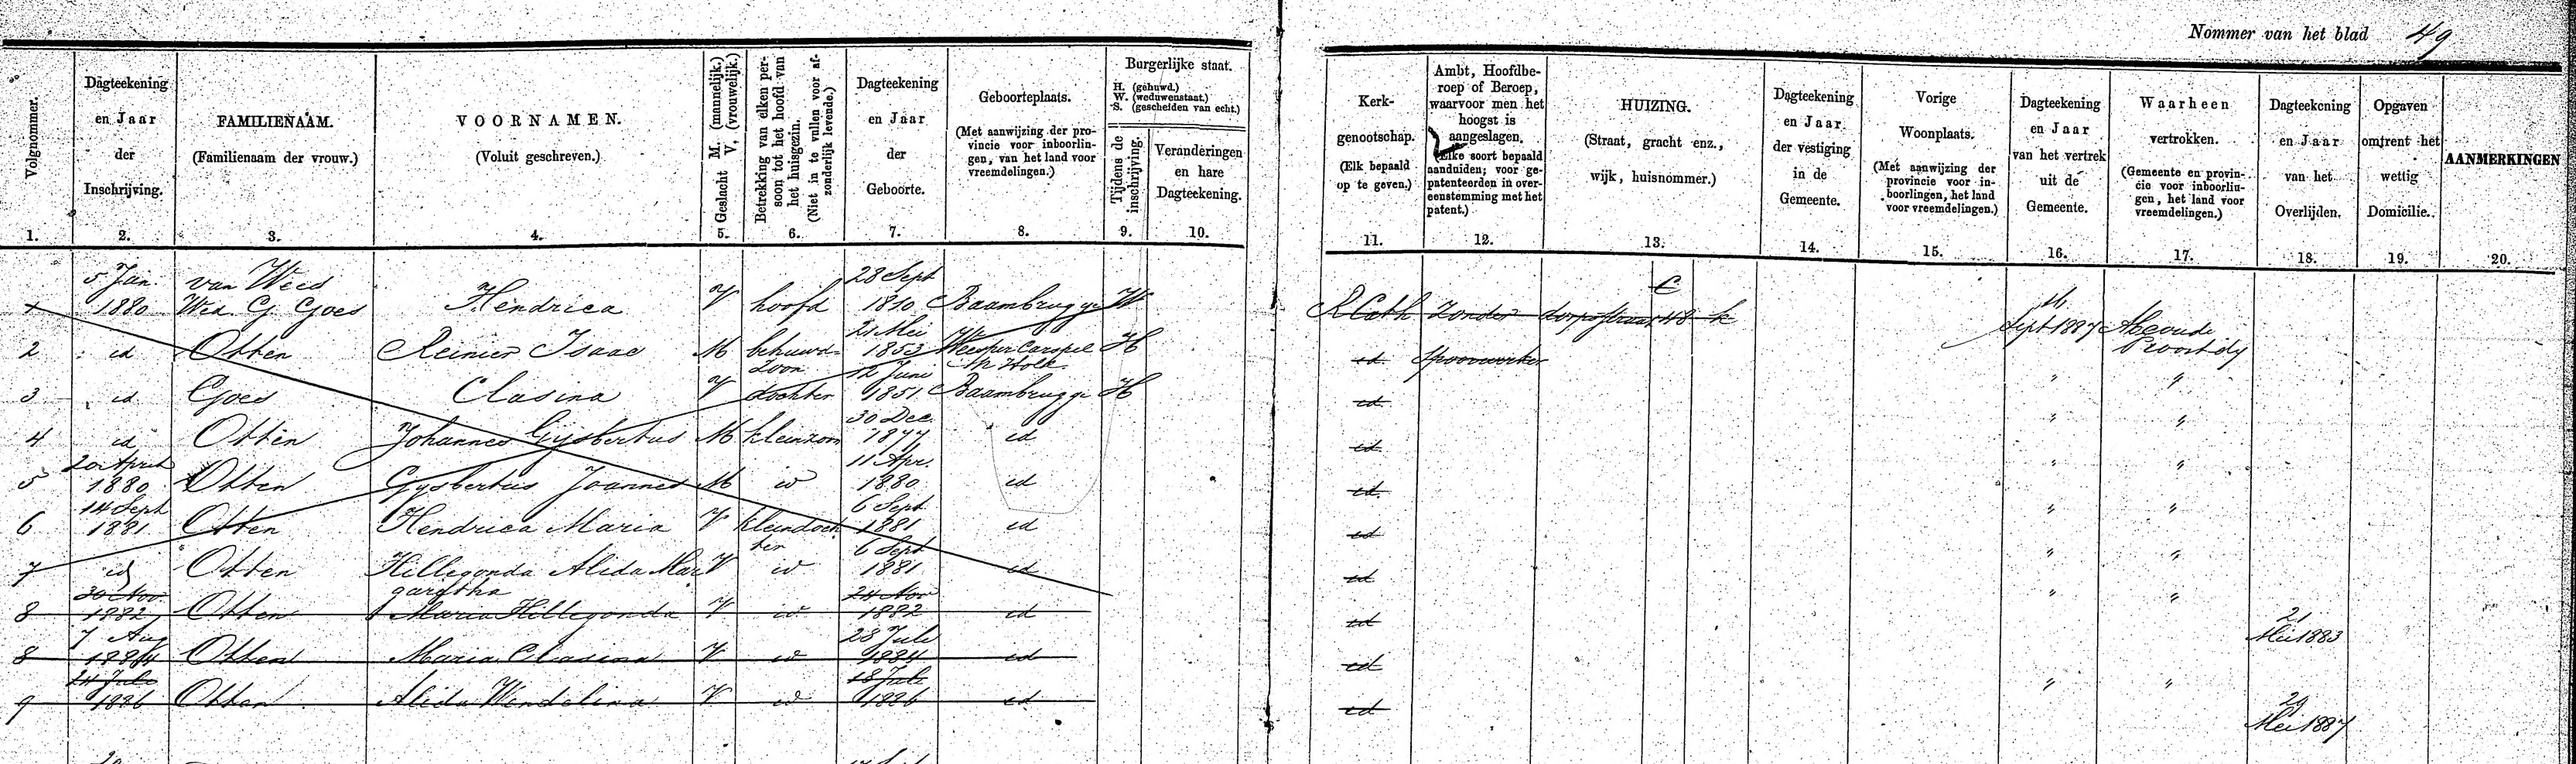 Nommer van het blad 49
Volgnommer.
Dagteekening
en Jaar
der
Inschrijving.
FAMILIENAAM.
(Familienaam der vrouw.)
VOORNAMEN.
(Voluit geschreven.)
Geslacht M. (mannelijk.)
V. (vrouwelijk.)
Betrekking van elken per-
soon tot het hoofd van
het huisgezin.
(Niet in te vullen voor af-
zonderlijk levende.)
Dagteekening
en Jaar
der
Geboorte.
Geboorteplaats.
(Met aanwijzing der pro-
vincie voor inboorlin-
gen, van het land voor
vreemdelingen.)
Burgerlijke staat.
H. (gehuwd.)
W. (weduwenstaat.)
S. (gescheiden van echt.)
Tijdens de
inschrijving.
Veranderingen
en hare
Dagteekening.
Kerk-
genootschap.
(Elk bepaald
op te geven.)
Ambt, Hoofdbe-
roep of Beroep,
waarvoor men het
hoogst is
aangeslagen.
(Elke soort bepaald
aanduiden; voor ge-
patenteerden in over-
eenstemming met het
patent.)
HUIZING.
(Straat, gracht enz.,
wijk, huisnommer.)
Dagteekening
en Jaar
der vestiging
in de
Gemeente.
Vorige
Woonplaats.
(Met aanwijzing der
provincie voor in-
boorlingen, het land
voor vreemdelingen.)
Dagteekening
en Jaar
van het vertrek
uit de
Gemeente.
Waarheen
vertrokken.
(Gemeente en provin-
cie voor inboorlin-
gen, het land voor
vreemdelingen.)
Dagteekening
en Jaar
van het
Overlijden.
Opgaven
omtrent het
wettig
Domicilie.
AANMERKINGEN
1. 2. 3. 4. 5. 6. 7. 8. 9. 10. 11. 12. 13. 14. 15. 16. 17. 18. 19. 20.
5 Jan. van Weed 28 Sept
1 1880 Wed. G. Goes Hendrica V hoofd 1810 Baambrugge W R Cath Zonder dorpsstraat 48 k Sept 1887 Abcoude
21 Mei Proostdy
2 id Otten Reinier Isaac M behuwd- 1853 Weesper Carspel H id Spoorwerker
zoon 12 Juni N Holl.
3 id Goes Clasina V dochter 1851 Baambrugge H id " "
30 Dec.
4 id Otten Johannes Gijsbertus M kleinzoon 1877 id id " "
20 April 11 Apr.
5 1880 Otten Gysbertus Joannes M id 1880 id id " "
14 Sept 6 Sept
6 1881 Otten Hendrica Maria V kleindoch 1881 id id " "
ter 6 Sept
7 id Otten Hillegonda Alida Mar V id 1881 id id " "
30 Nov garetha 24 Nov
8 1882 Otten Maria Hillegonda V id 1882 id id " "
21
Mei 1883
7 Aug 28 Juli
8 1884 Otten Maria Clasina V id 1884 id id
24 Juli 18 Juli
9 1886 Otten Alida Wendelina V id 1886 id id " "
29
Mei 1887